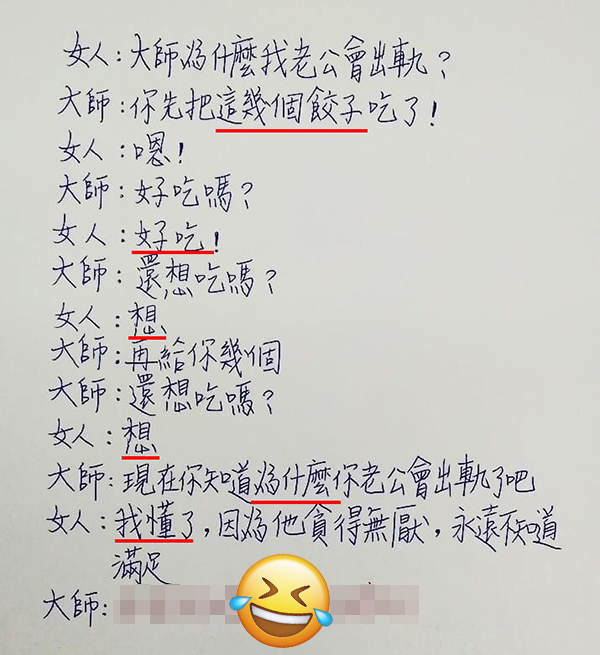 女人：大師為什麼我老公會出軌？
大師：你先把這幾個餃子吃了！
女人：嗯！
大師：好吃嗎？
女人：好吃！
大師：還想吃嗎？
女人：想
大師：再給你幾個
大師：還想吃嗎？
女人：想
大師：現在你知道為什麼你老公會出軌了吧
女人：我懂了，因為他貪得無厭，永遠不知道
滿足
大師：